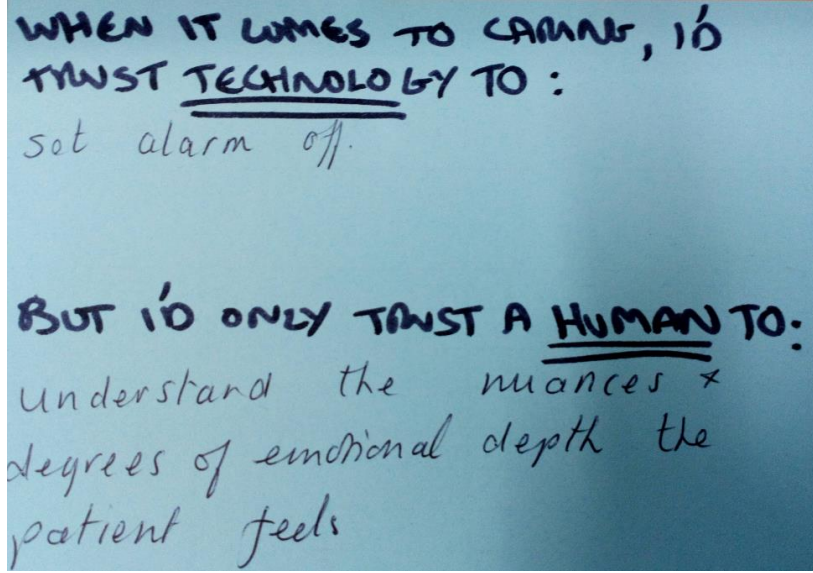 WHEN IT COMES TO CARING, I'D
TRUST TECHNOLOGY TO:
set alarm off.
BUT I'D ONLY TRUST A HUMAN TO:
understand the nuances &
degrees of emotional depth the
patient feels